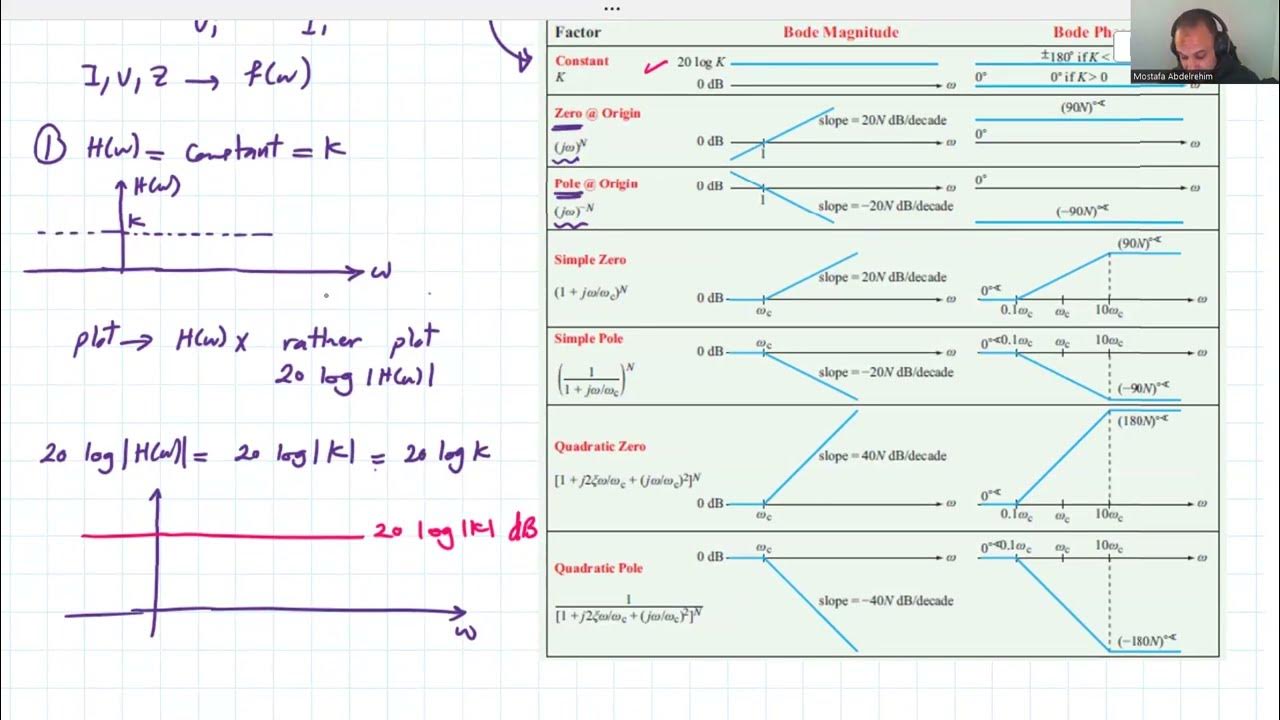 ...
V, I,
I, V, Z → f(ω)
① H(ω) = constant = K
H(ω)
K
ω
plot → H(ω) x rather plot
20 log |H(ω)|
20 log |H(ω)| = 20 log |K| = 20 log K
20 log |K| dB
ω
Factor Bode Magnitude Bode Pha
Constant
K
20 log K
0 dB
ω
±180° if K <
0° 0° if K > 0
Zero @ Origin
(jω)^N
0 dB
1
slope = 20N dB/decade
ω
(90N)°
0°
ω
Pole @ Origin
(jω)^−N
0 dB
1
slope = −20N dB/decade
ω
0°
(−90N)°
ω
Simple Zero
(1 + jω/ω_c)^N
0 dB
ω_c
slope = 20N dB/decade
ω
(90N)°
0°
0.1ω_c ω_c 10ω_c
ω
Simple Pole
(1/(1 + jω/ω_c))^N
0 dB
ω_c
slope = −20N dB/decade
ω
0° 0.1ω_c ω_c 10ω_c
ω
(−90N)°
Quadratic Zero
[1 + j2ξω/ω_c + (jω/ω_c)²]^N
0 dB
ω_c
slope = 40N dB/decade
ω
(180N)°
0°
0.1ω_c ω_c 10ω_c
ω
Quadratic Pole
1/[1 + j2ξω/ω_c + (jω/ω_c)²]^N
0 dB
ω_c
slope = −40N dB/decade
ω
0° 0.1ω_c ω_c 10ω_c
ω
(−180N)°
Mostafa Abdelrehim